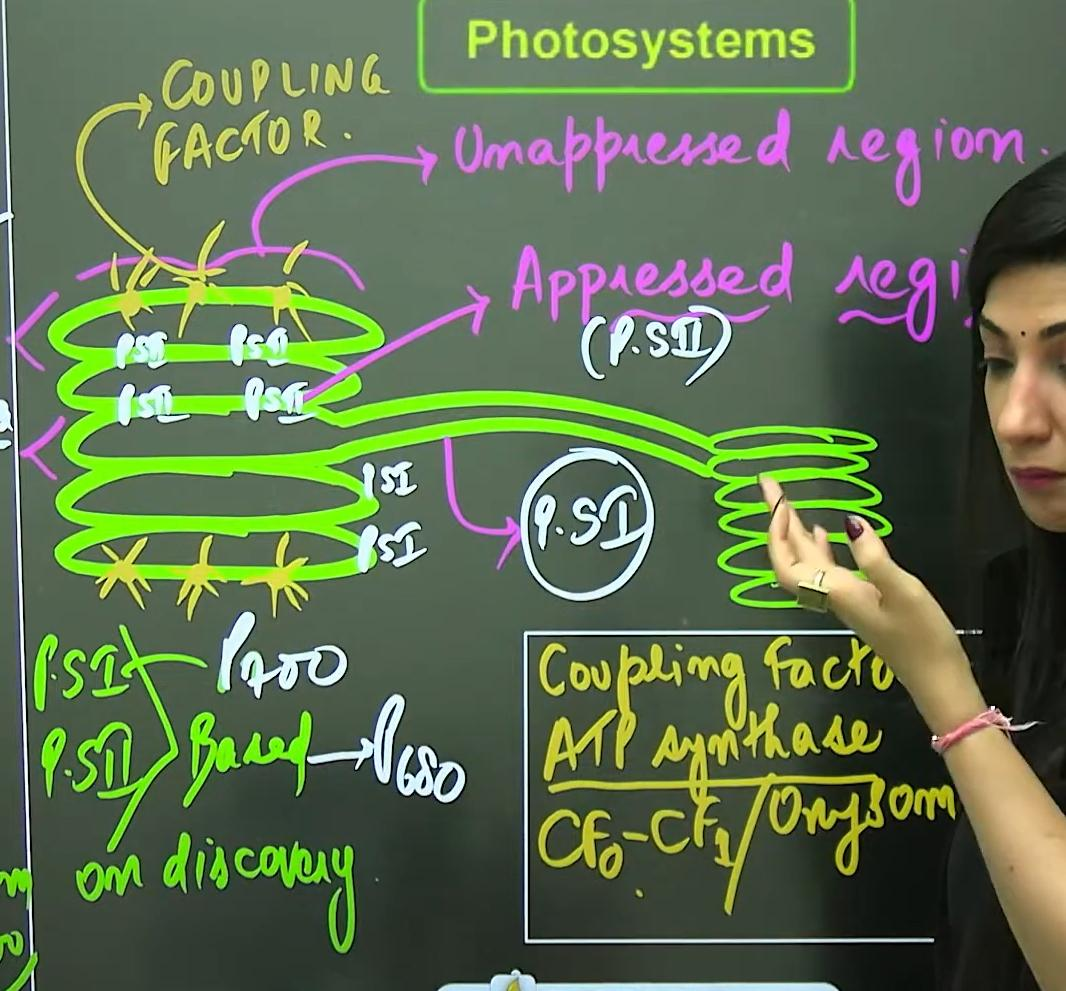 Photosystems
COUPLING
FACTOR.
Unappressed region.
Appressed regi
(P.SII)
PSII PSII
PSII PSII
PSI
PSI
P.SI
P.SI P700
P.SII Based → P680
on discovery
Coupling facto
ATP synthase
CF0-CF1/Oxysom